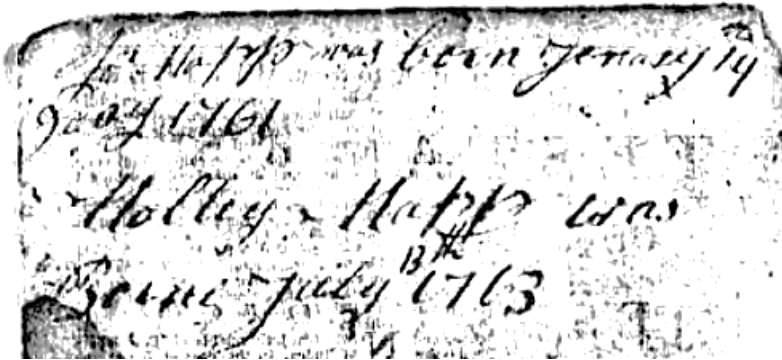 Happ was born Jenary 19
Day 1761
Molley Happ was
Borne July 13th 1763